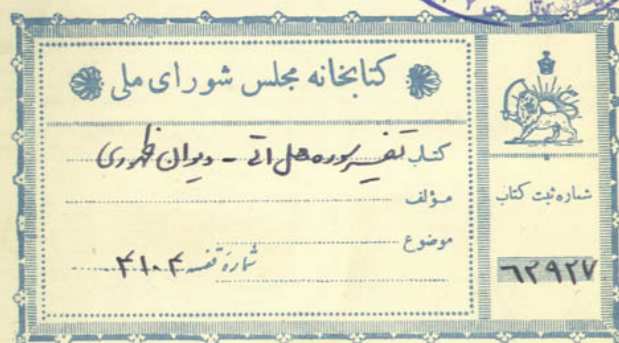 کتابخانه مجلس شورای ملی
کتاب تفسیر سوره هل اتی - دیوان ظهوری
مؤلف
موضوع
شماره قفسه ۴۱۰۴
شماره ثبت کتاب
۶۲۹۲۷